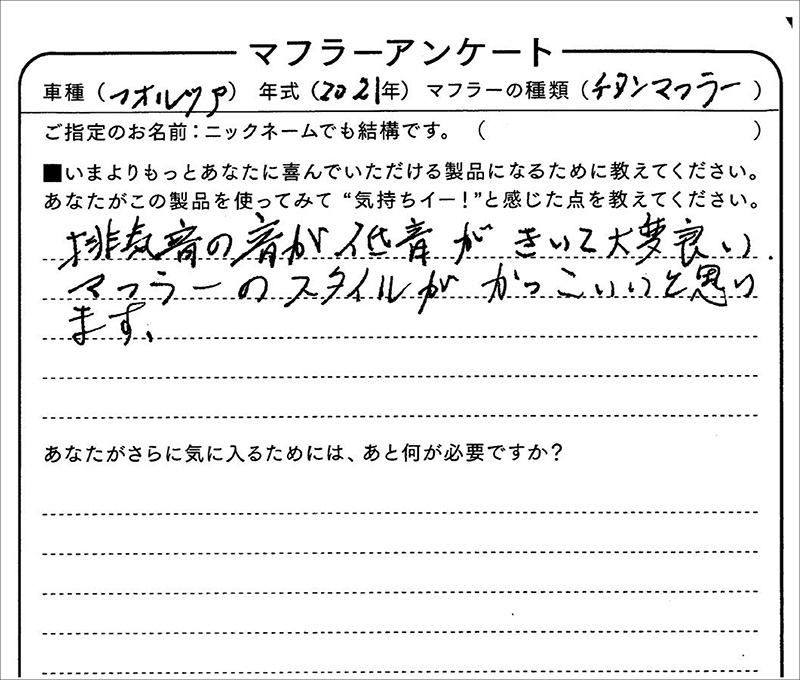 マフラーアンケート
車種（フオルツァ） 年式（2021年） マフラーの種類（チタンマフラー）
ご指定のお名前：ニックネームでも結構です。（　　　）
■いまよりもっとあなたに喜んでいただける製品になるために教えてください。
あなたがこの製品を使ってみて“気持ちイー！”と感じた点を教えてください。
排気音の音が低音がきいて大変良い.
マフラーのスタイルがかっこいいと思い
ます、
あなたがさらに気に入るためには、あと何が必要ですか？